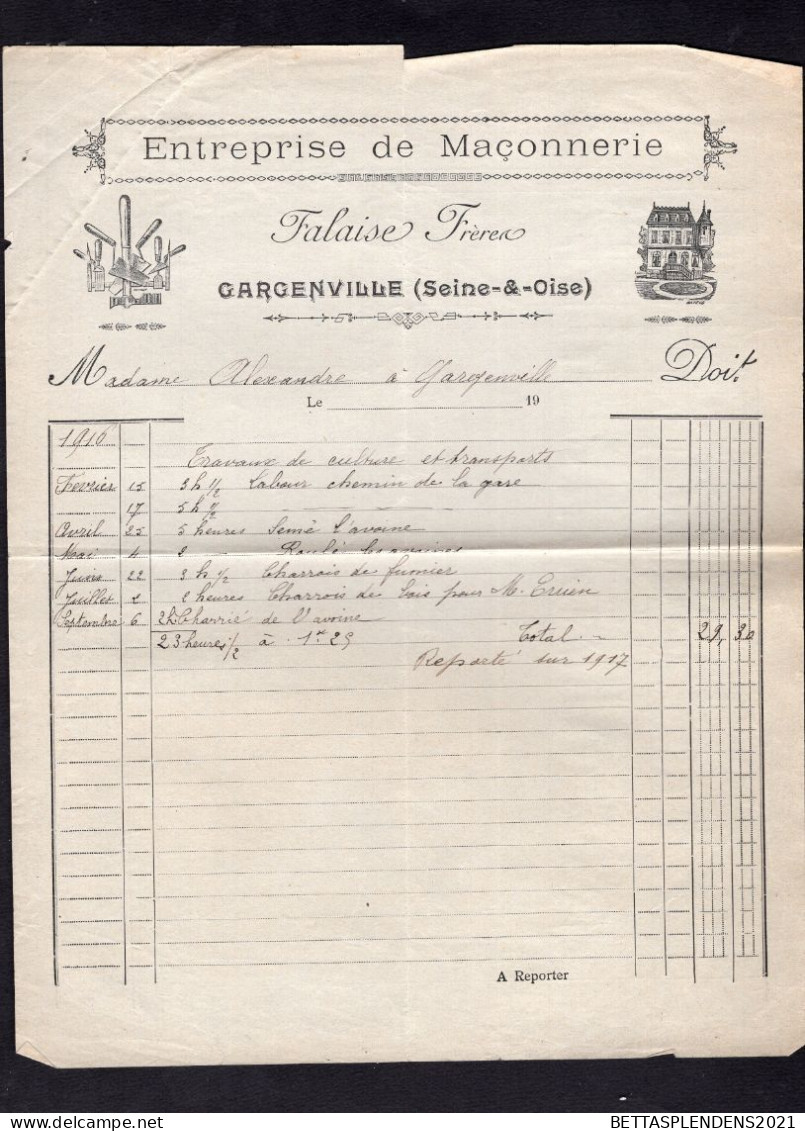 Entreprise de Maçonnerie
Falaise Frères
GARGENVILLE (Seine-&-Oise)
Madame Alexandre à Gargenville Doit
Le 19
1916
Travaux de culture et transports
Février 15 3 h 1/2 Labour chemin de la gare
17 5 h 1/2 — — — —
Avril 25 5 heures Semé l'avoine
Mai 4 2 — Roulé les avoines
Juin 22 3 h 1/2 Charrois de fumier
Juillet 2 2 heures Charrois de bois pour M.
Septembre 6 2h Charrié de l'avoine
23 heures 1/2 à 1fr 25 Total 29,30
Reporté sur 1917
A Reporter
BETTASPLENDENS2021